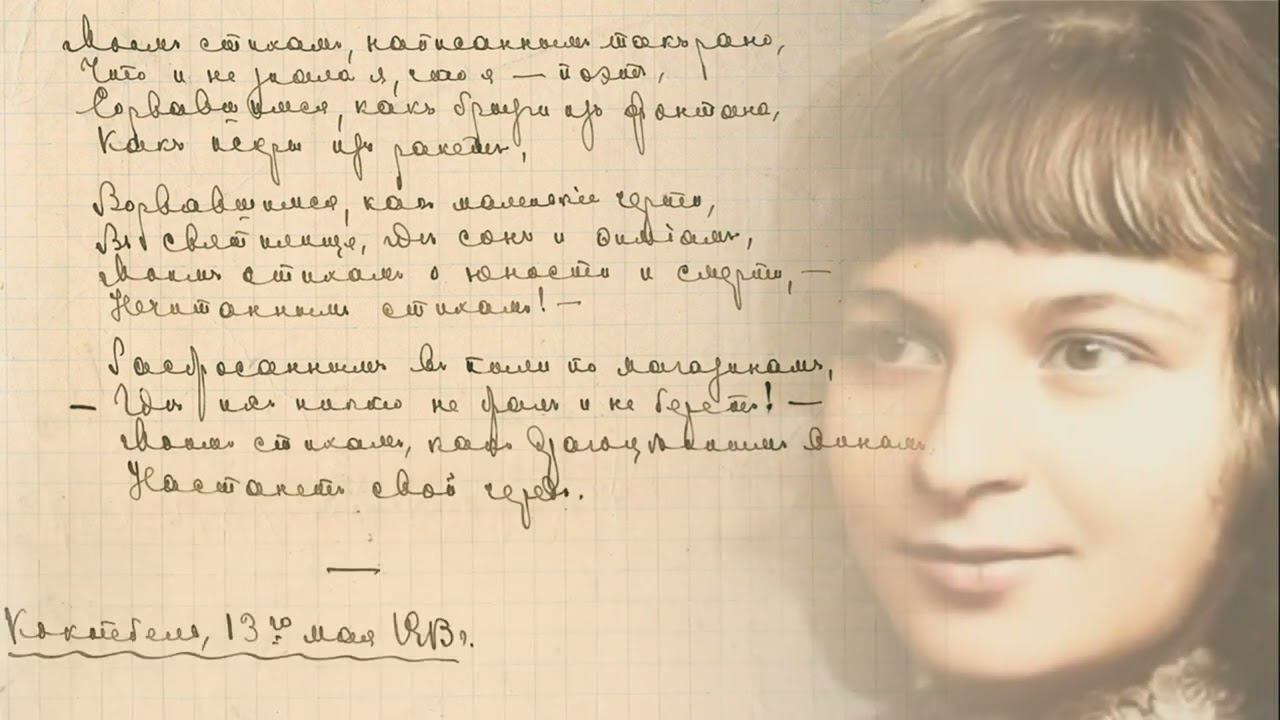 Моимъ стихамъ, написаннымъ такъ рано,
Что и не знала я, что я — поэтъ,
Сорвавшимся, какъ брызги изъ фонтана,
Какъ искры изъ ракетъ,
Ворвавшимся, какъ маленькіе черти,
Въ святилище, гдѣ сонъ и ѳиміамъ,
Моимъ стихамъ о юности и смерти, —
Нечитаннымъ стихамъ! —
Разбросаннымъ въ пыли по магазинамъ,
— Гдѣ ихъ никто не бралъ и не беретъ! —
Моимъ стихамъ, какъ драгоцѣннымъ винамъ,
Настанетъ свой чередъ.
Коктебель, 13го мая 1913 г.